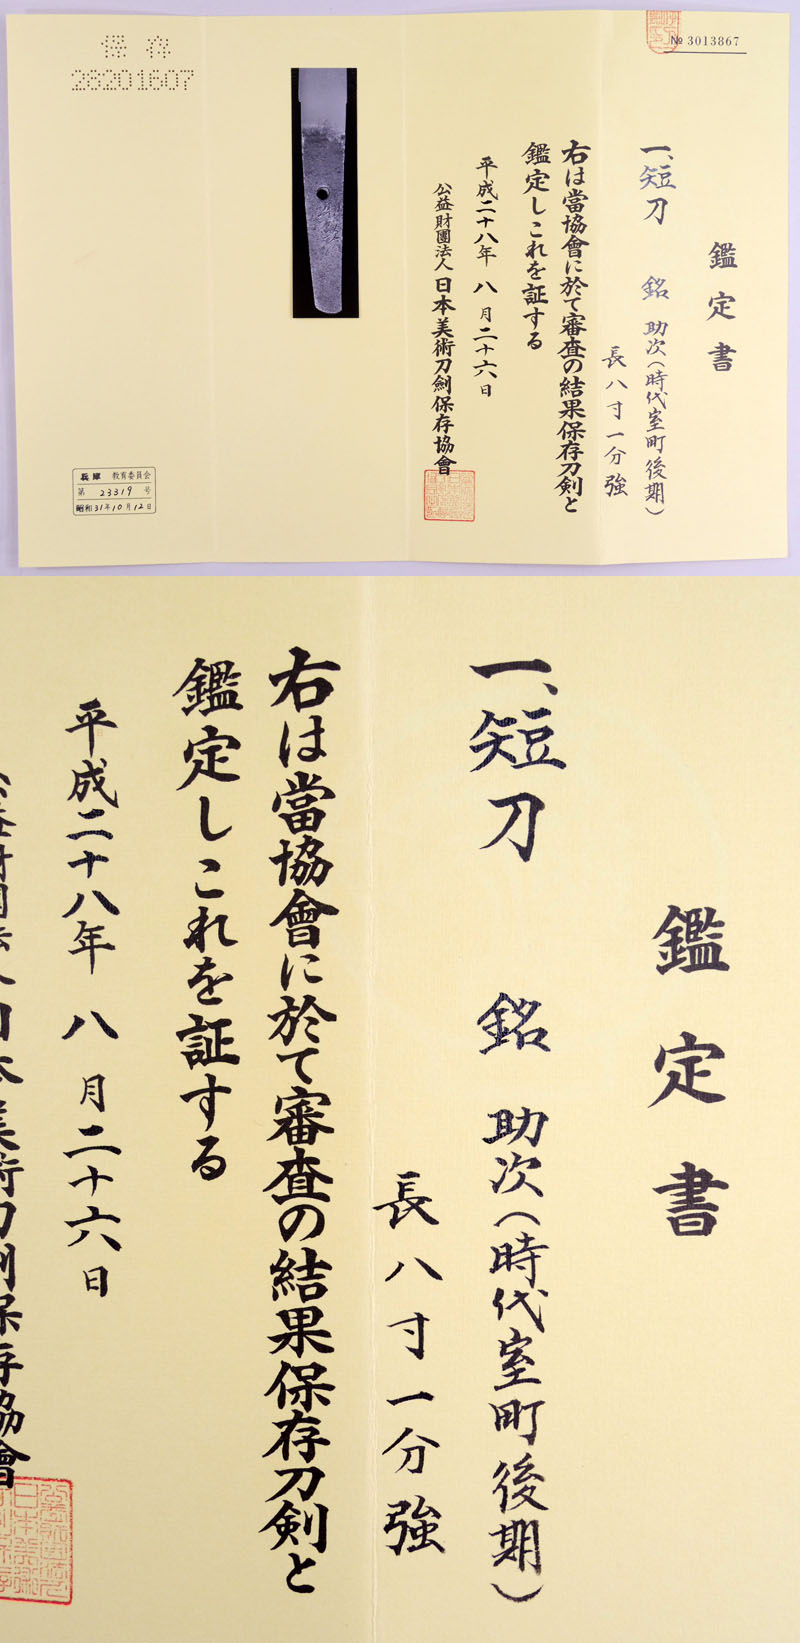 № 3013867
鑑定書
一、短刀　銘　助次(時代室町後期)
長八寸一分強
右は當協會に於て審査の結果保存刀剣と
鑑定しこれを証する
平成二十八年八月二十六日
公益財團法人日本美術刀劍保存協會
保存
28201607
兵庫 教育委員会
第 23319 号
昭和31年10月12日
鑑定書
一、短刀　銘　助次(時代室町後期)
長八寸一分強
右は當協會に於て審査の結果保存刀剣と
鑑定しこれを証する
平成二十八年八月二十六日
公益財團法人日本美術刀劍保存協會